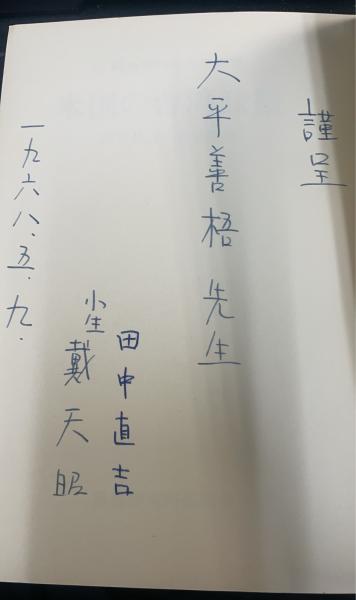 謹呈
大平善梧先生
田中直吉
小生
戴天昭
一九六八.五.九.